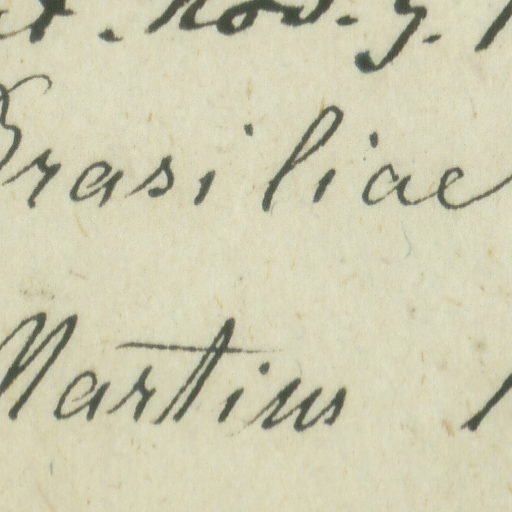 Nov. g.
Brasiliae
Martius